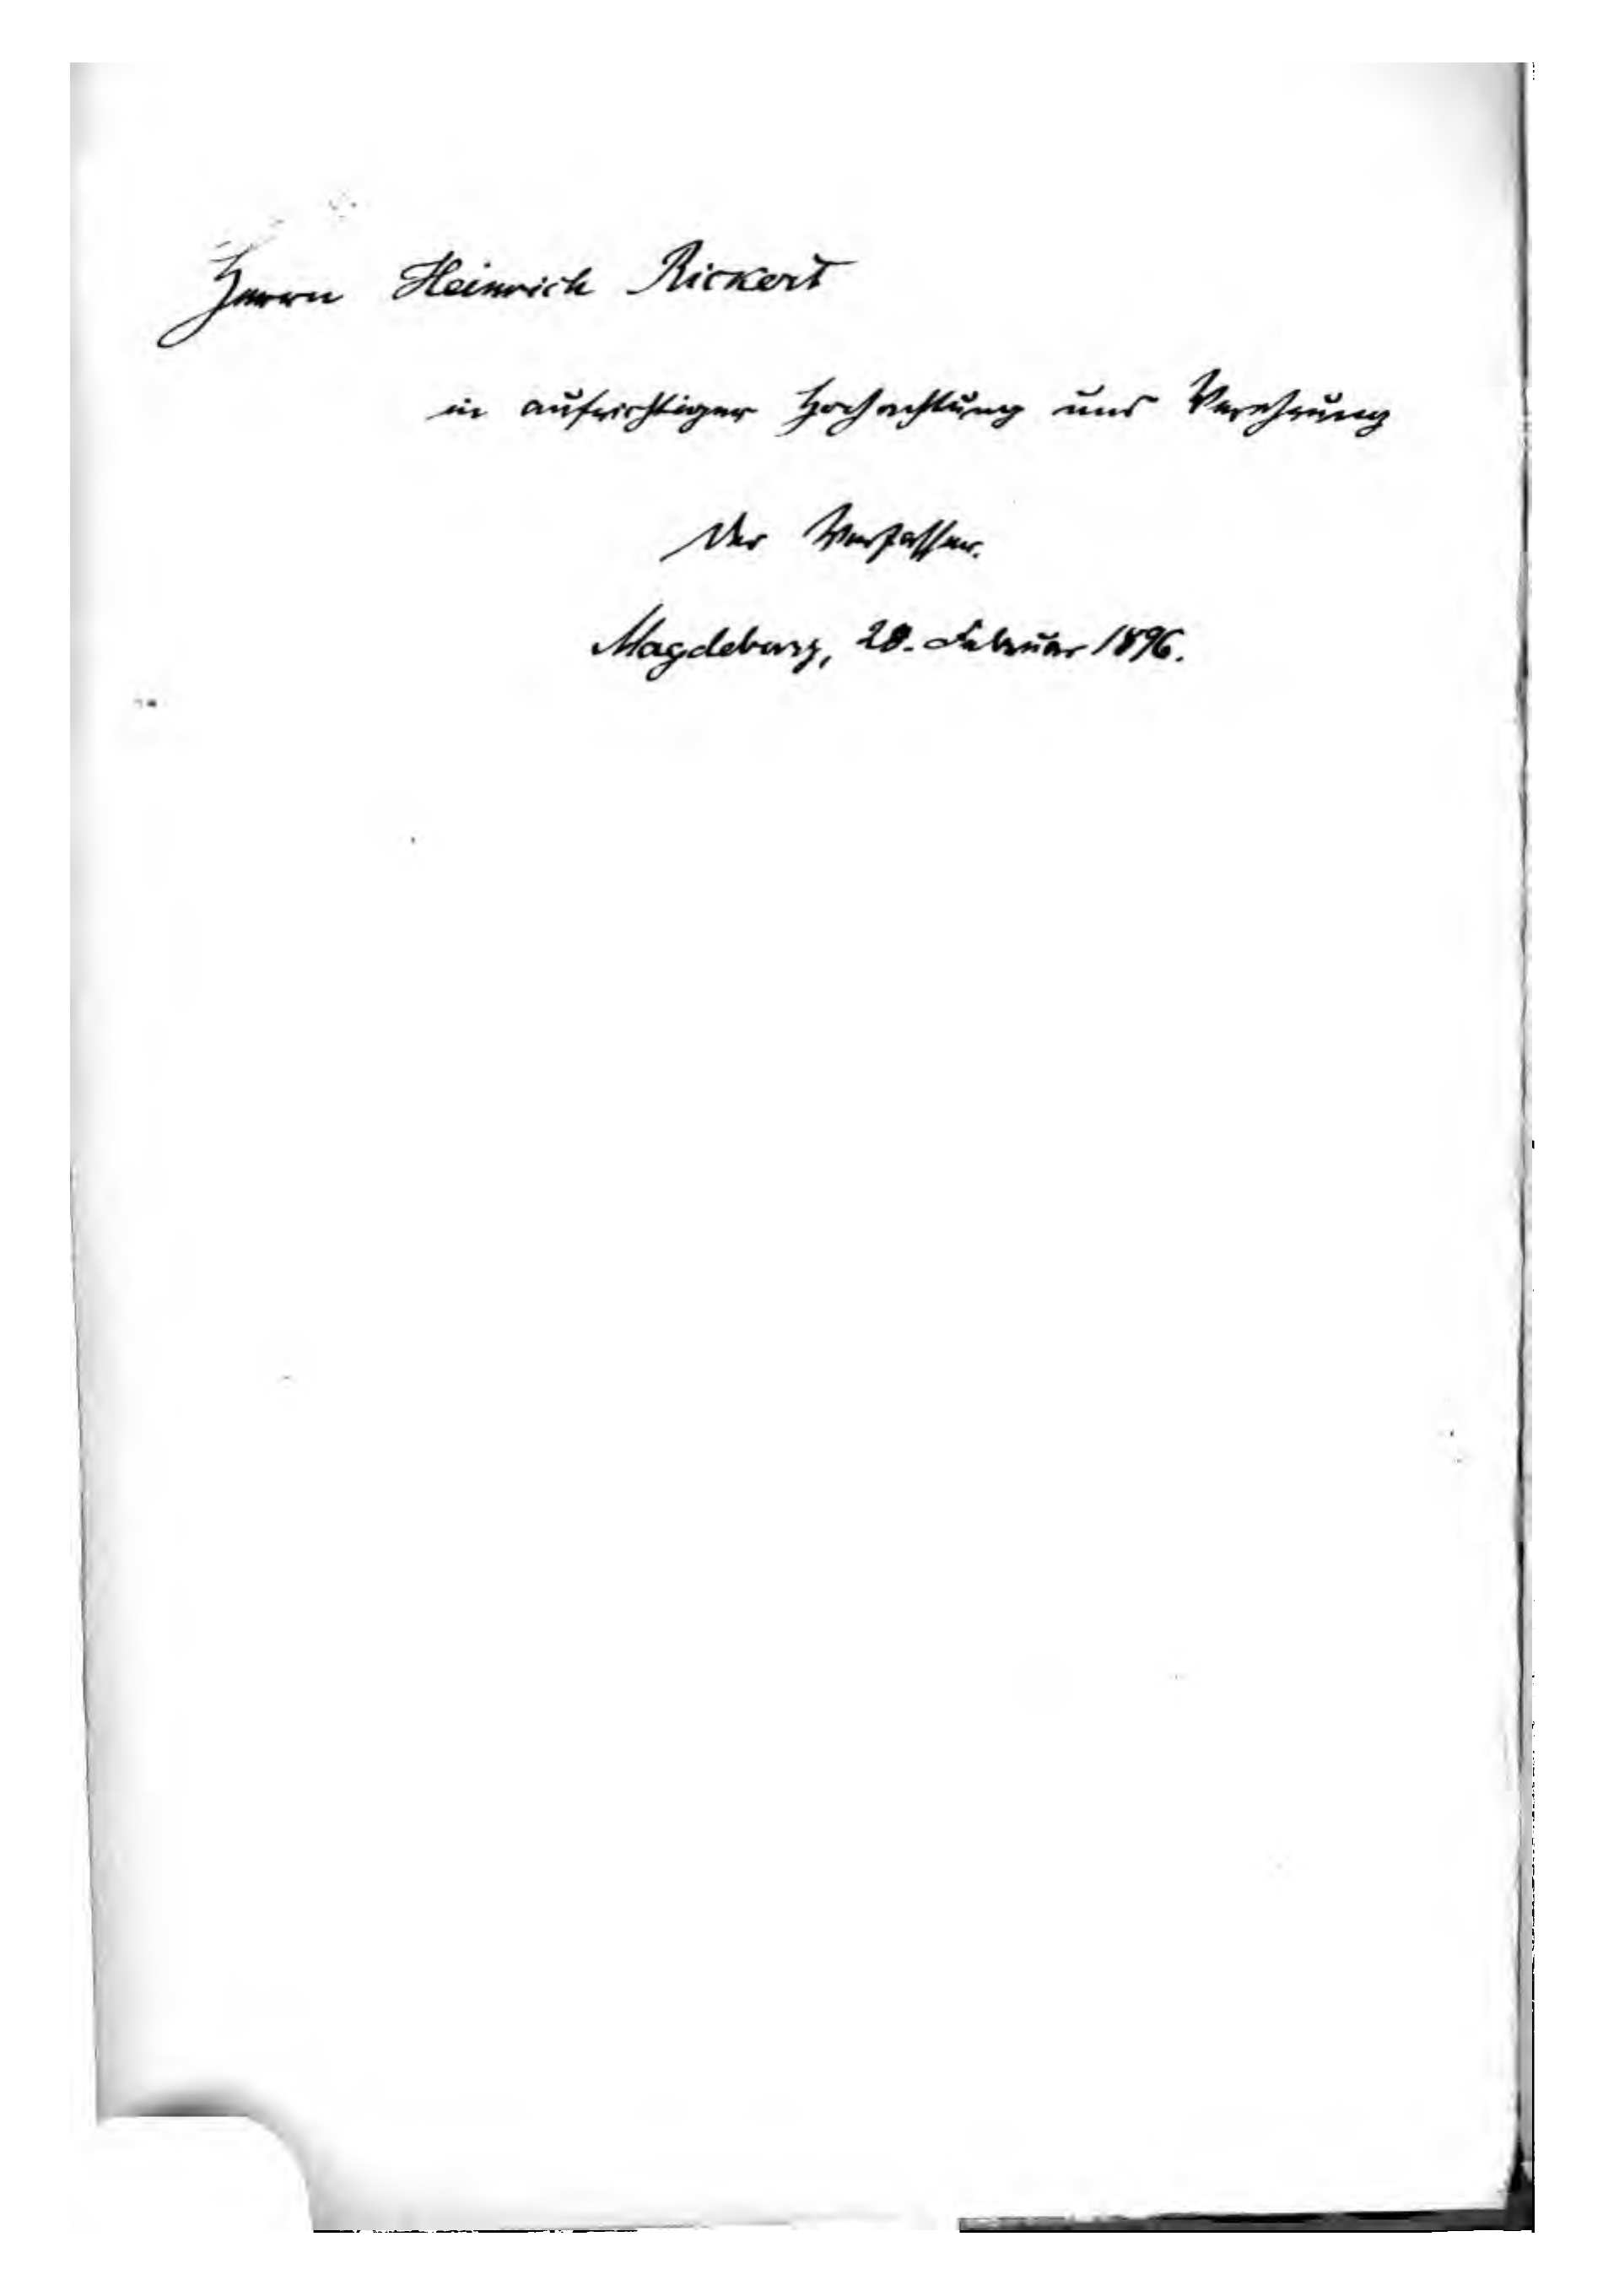 Herrn Heinrich Rickert
in aufrichtiger Hochachtung und Verehrung
Der Verfasser.
Magdeburg, 28. Februar 1896.